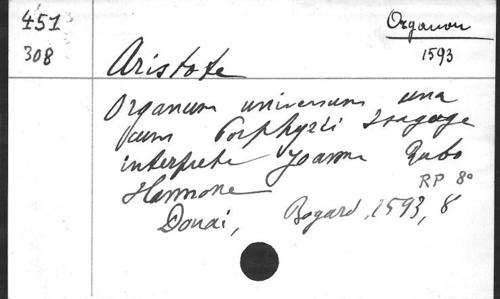 451
308
Organon
1593
Aristote
Organum universum una
cum Porphyrii Isagoge
interprete Joanne Rubo
Hannone
RP 8º
Douai, Bogard, 1593, 8